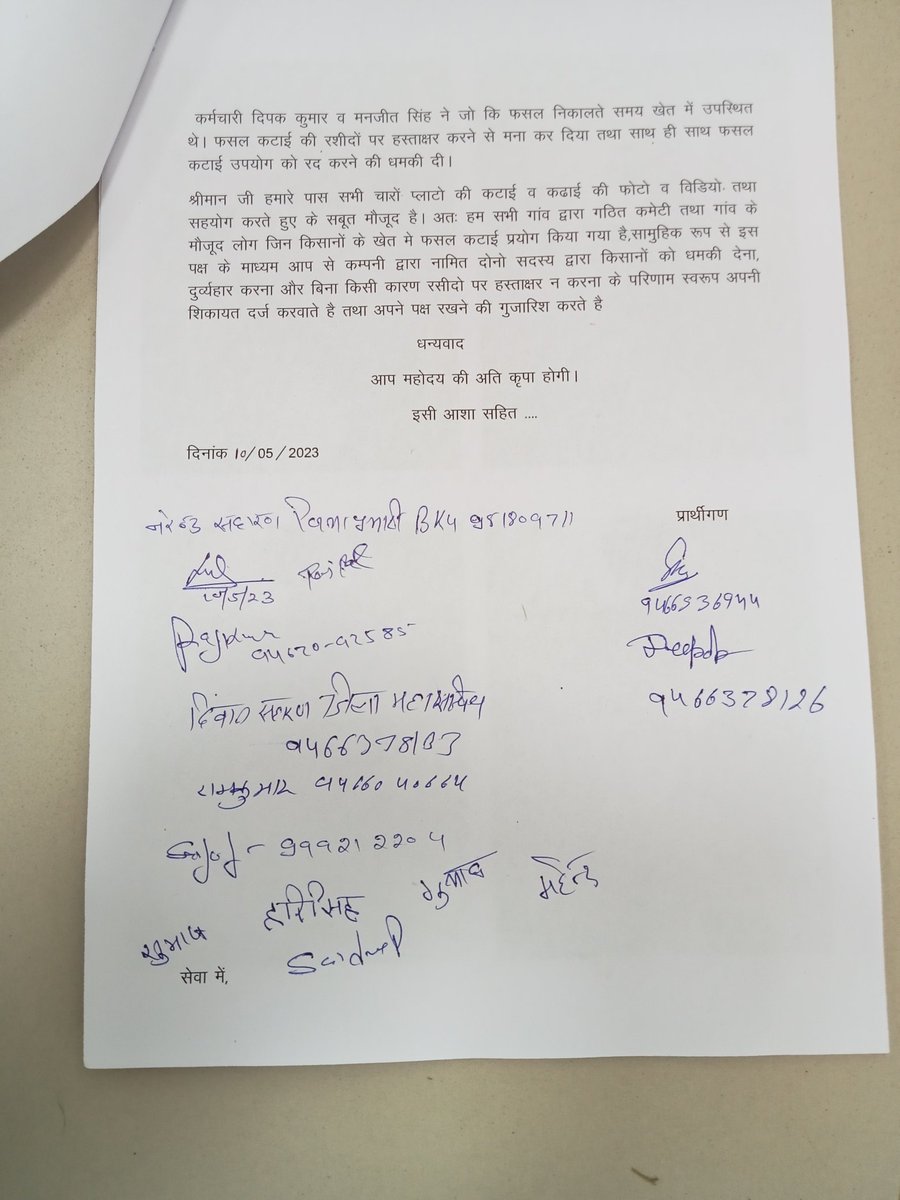 कर्मचारी दिपक कुमार व मनजीत सिंह ने जो कि फसल निकालते समय खेत में उपस्थित
थे। फसल कटाई की रशीदों पर हस्ताक्षर करने से मना कर दिया तथा साथ ही साथ फसल
कटाई उपयोग को रद करने की धमकी दी।
श्रीमान जी हमारे पास सभी चारों प्लाटो की कटाई व कढाई की फोटो व विडियो तथा
सहयोग करते हुए के सबूत मौजूद है। अतः हम सभी गांव द्वारा गठित कमेटी तथा गांव के
मौजूद लोग जिन किसानों के खेत मे फसल कटाई प्रयोग किया गया है,सामुहिक रूप से इस
पक्ष के माध्यम आप से कम्पनी द्वारा नामित दोनो सदस्य द्वारा किसानों को धमकी देना,
दुर्व्यहार करना और बिना किसी कारण रसीदो पर हस्ताक्षर न करना के परिणाम स्वरूप अपनी
शिकायत दर्ज करवाते है तथा अपने पक्ष रखने की गुजारिश करते है
धन्यवाद
आप महोदय की अति कृपा होगी।
इसी आशा सहित ....
दिनांक 10/05/2023
प्रार्थीगण
BKU
10/5/23
९466536944
९4670-92585
जिला महासचिव
९466378126
रामकुमार ९4660 40664
हरिसिंह
सेवा में,